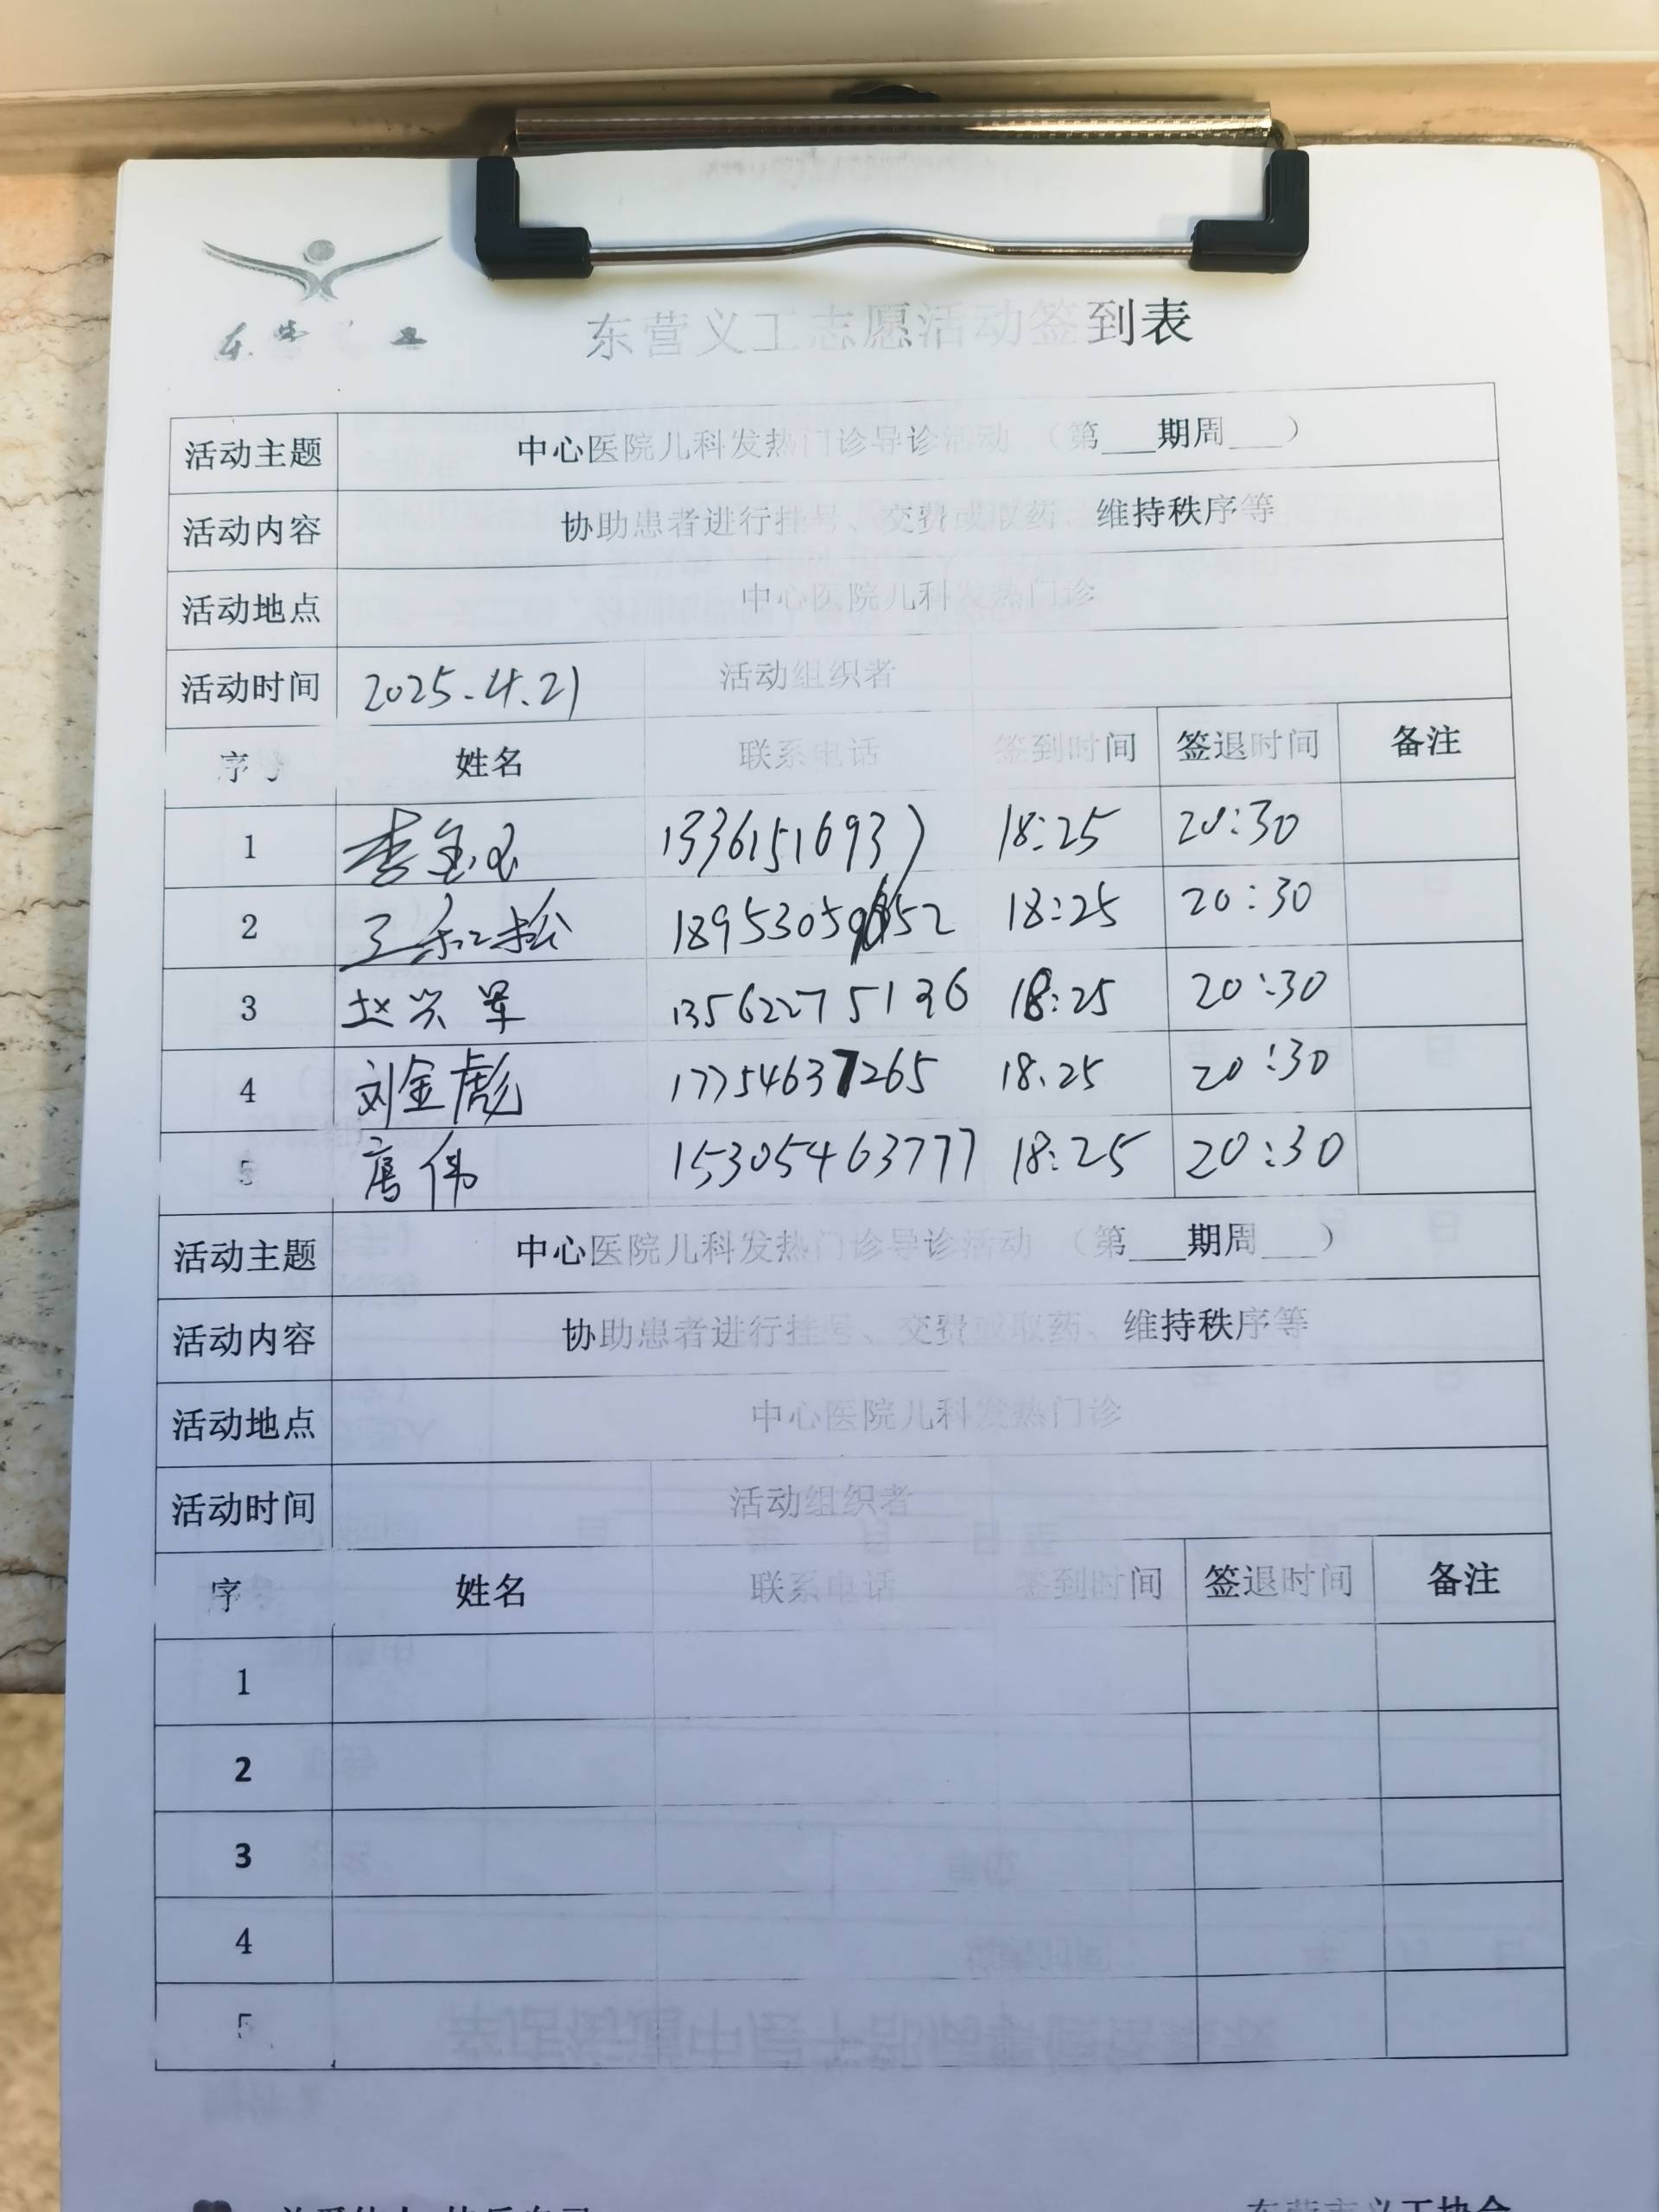 东营义工志愿活动签到表
活动主题 中心医院儿科发热门诊导诊活动 （第___期周___）
活动内容 协助患者进行挂号、交费或取药、维持秩序等
活动地点 中心医院儿科发热门诊
活动时间 2025.4.21 活动组织者
序号 姓名 联系电话 签到时间 签退时间 备注
1 13361516937 18:25 20:30
2 18:25 20:30
3 赵兴军 13562275136 18:25 20:30
4 刘金彪 17754637265 18.25 20:30
5 伟 15305463777 18:25 20:30
活动主题 中心医院儿科发热门诊导诊活动 （第___期周___）
活动内容 协助患者进行挂号、交费或取药、维持秩序等
活动地点 中心医院儿科发热门诊
活动时间 活动组织者
序 姓名 联系电话 签到时间 签退时间 备注
1
2
3
4
5